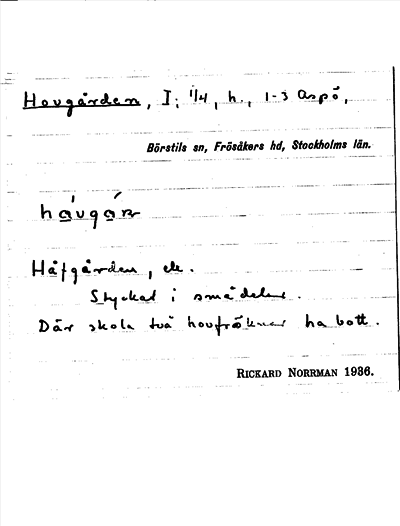 Hovgården, I; 1/4, h., 1-3 Aspö,
Börstils sn, Frösåkers hd, Stockholms län.
Håfgården, ek.
Styckat i smådelar.
Där skola två hovfröknar ha bott.
RICKARD NORRMAN 1936.